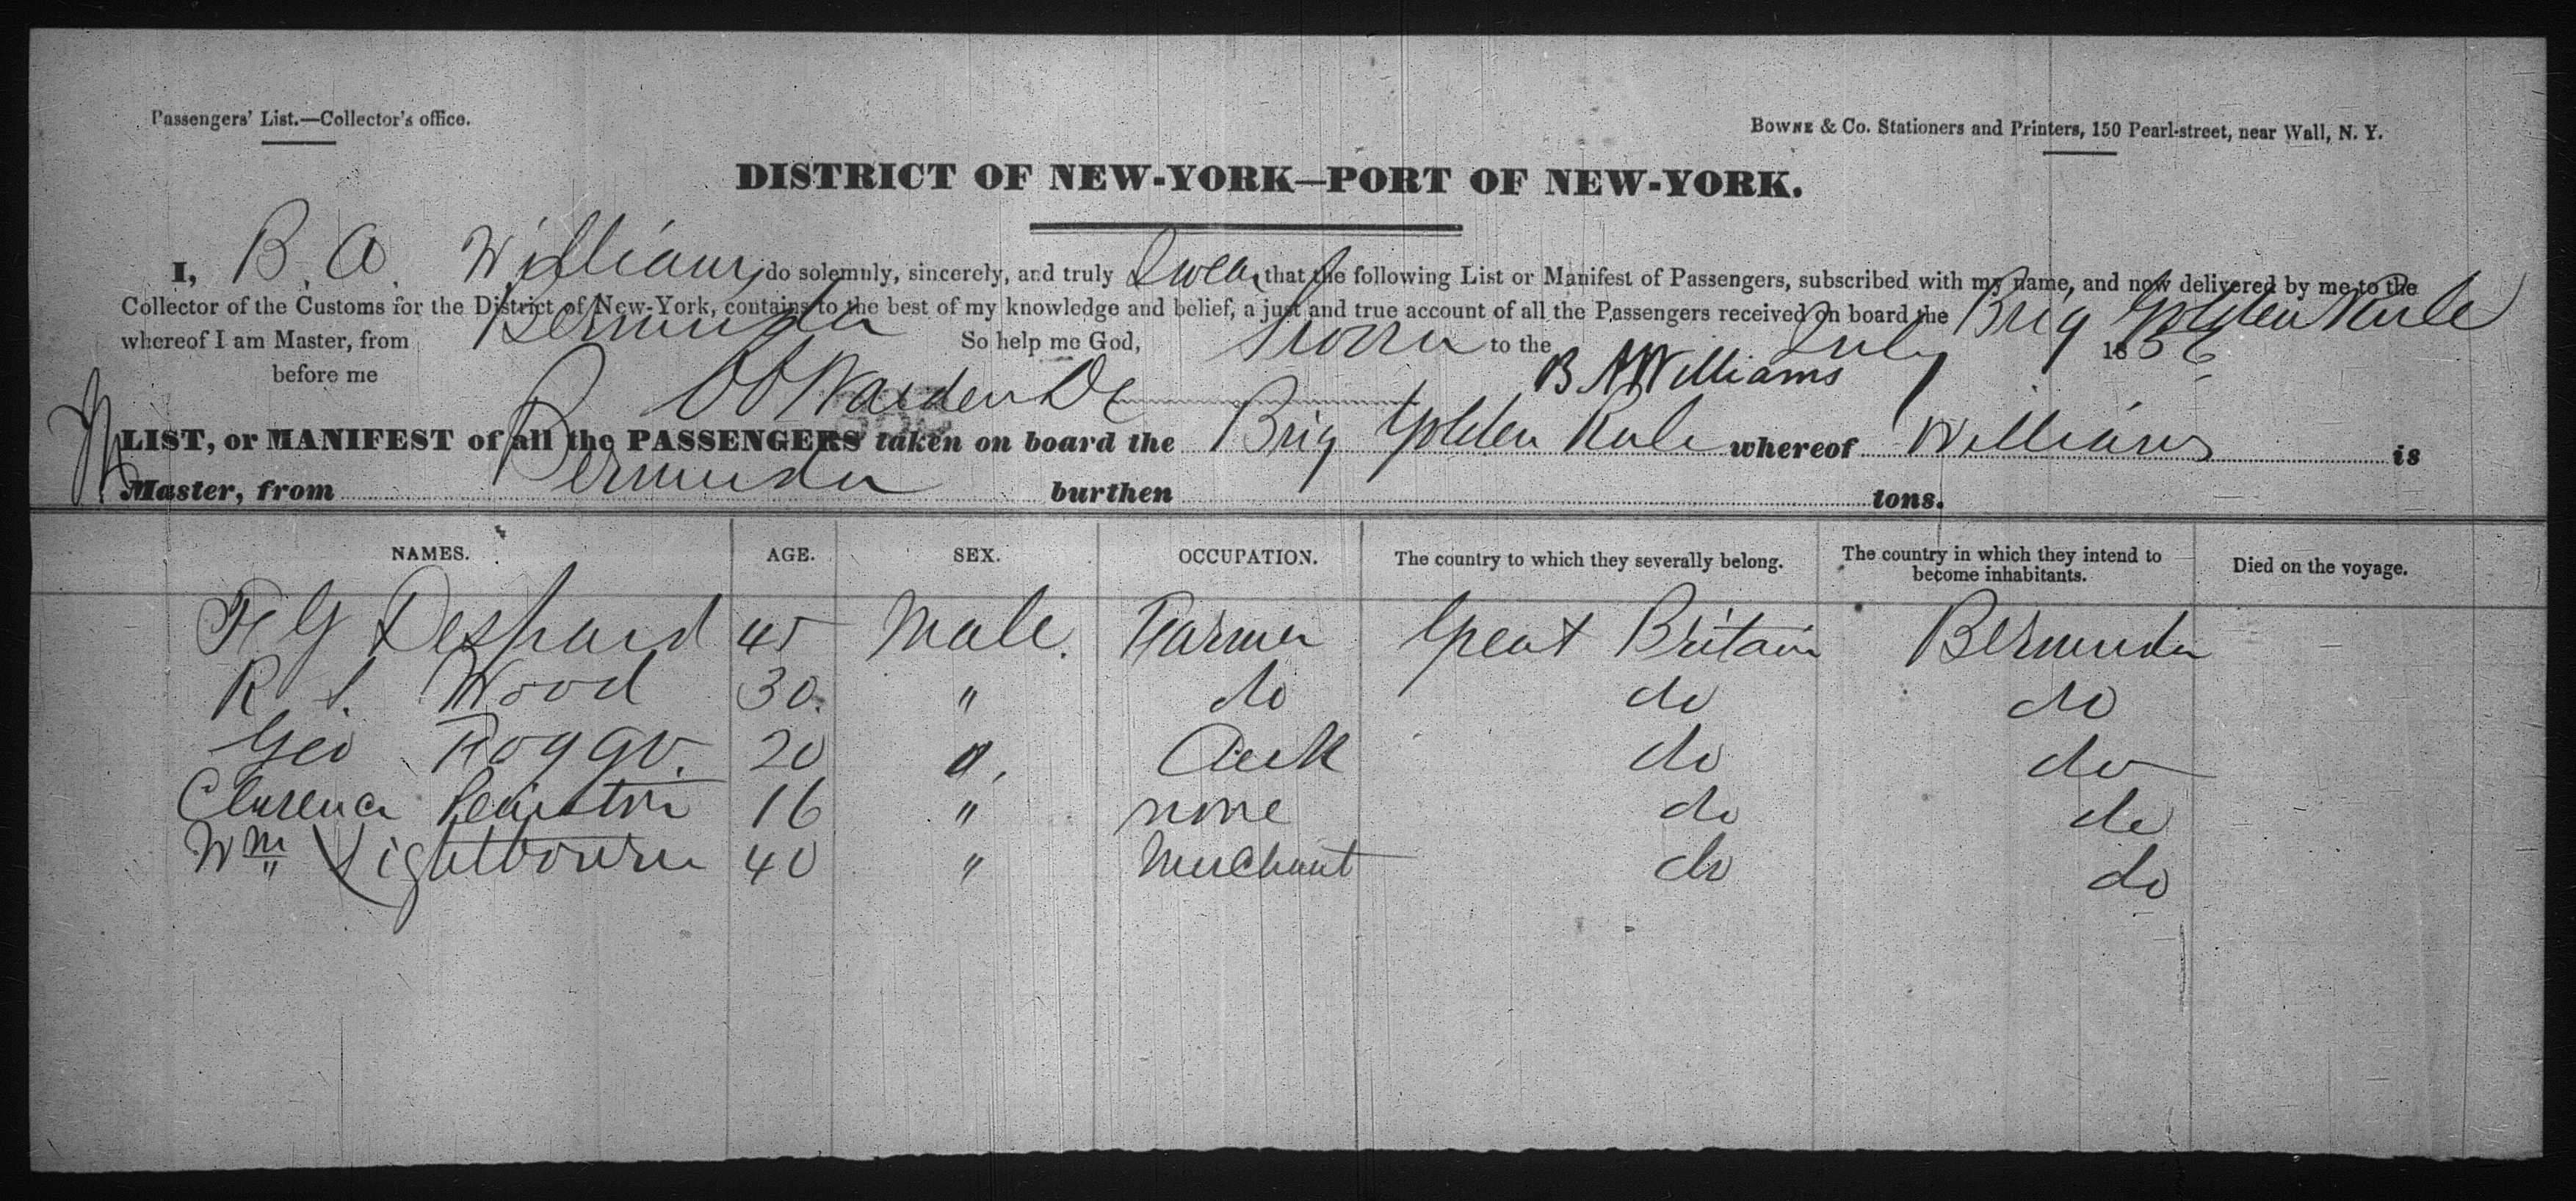 Passengers' List.—Collector's office.
BOWNE & Co. Stationers and Printers, 150 Pearl-street, near Wall, N. Y.
DISTRICT OF NEW-YORK—PORT OF NEW-YORK.
I, B. A. Williams, do solemnly, sincerely, and truly Swear that the following List or Manifest of Passengers, subscribed with my name, and now delivered by me to the
Collector of the Customs for the District of New-York, contains to the best of my knowledge and belief, a just and true account of all the Passengers received on board the Brig Golden Rule
whereof I am Master, from Bermuda So help me God, Sworn to the July 1856
before me B A Williams
LIST, or MANIFEST of all the PASSENGERS taken on board the Brig Golden Rule whereof Williams is
Master, from Bermuda burthen tons.
NAMES. AGE. SEX. OCCUPATION. The country to which they severally belong. The country in which they intend to become inhabitants. Died on the voyage.
F G Deshard 45 Male. Farmer Great Britain Bermuda
R S. Wood 30. " do do do
Geo Foggo. 20 " Clerk do do
Clarence Peniston 16 " none do do
Wm Lightbourn 40 " Merchant do do